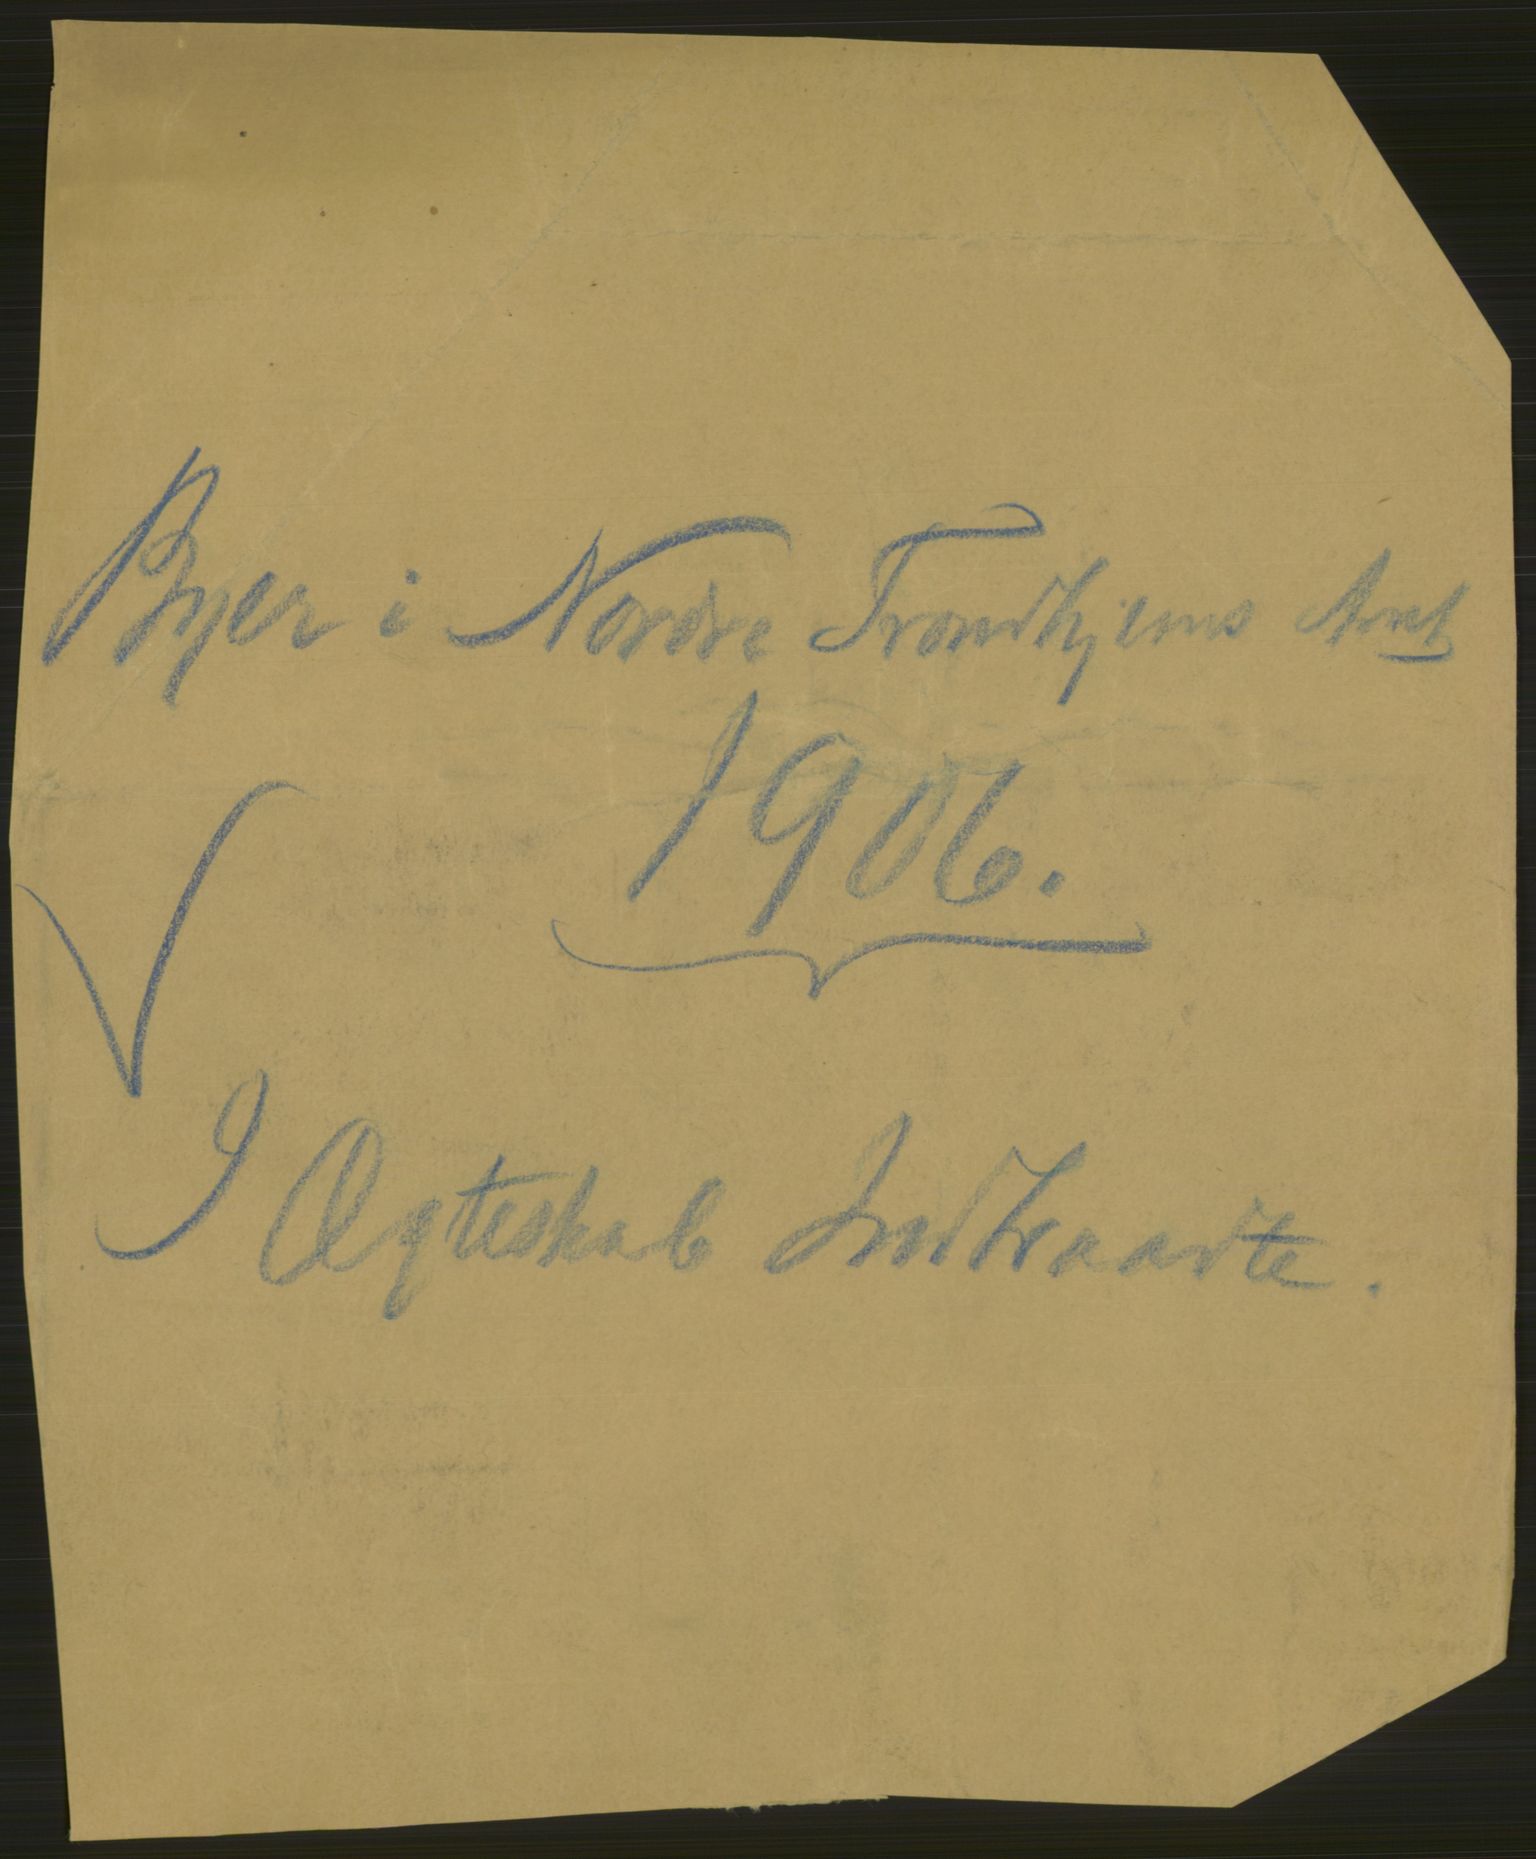 Byer i Nordre Trondhjems Amt
1906.
I Ægteskab Indtraadte.